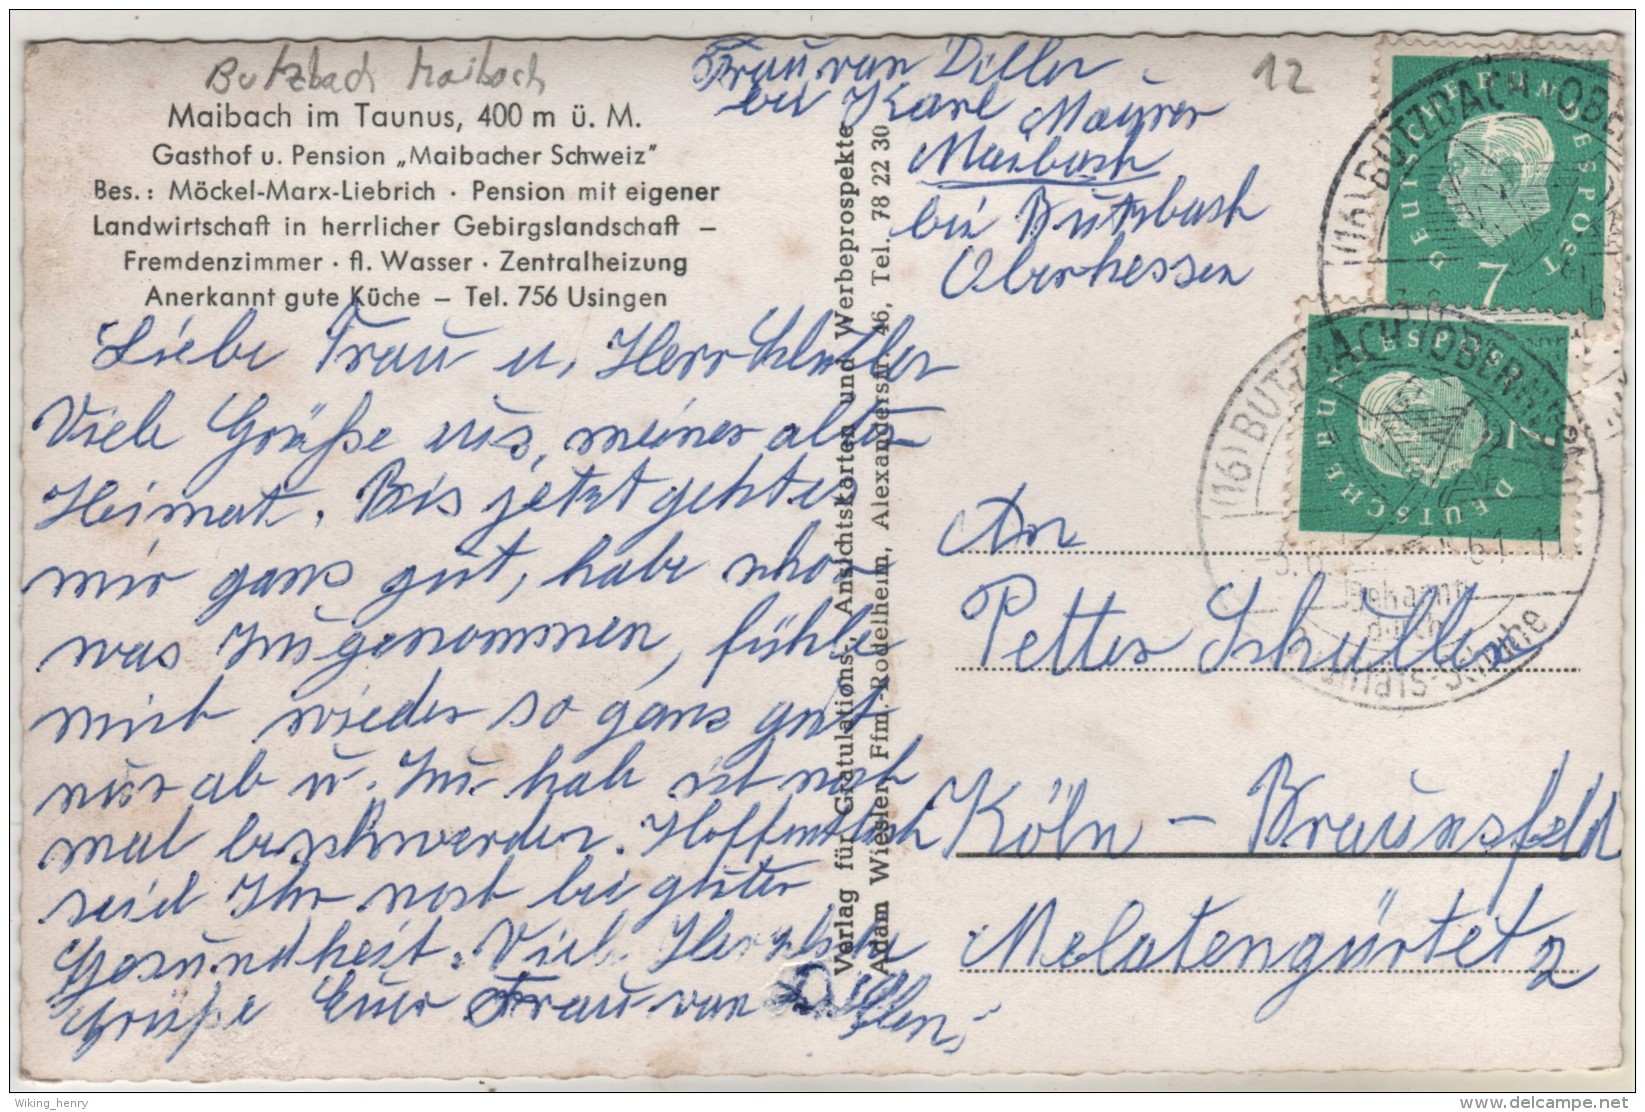 Butzbach Maibach
Maibach im Taunus, 400 m ü. M.
Gasthof u. Pension „Maibacher Schweiz"
Bes.: Möckel-Marx-Liebrich · Pension mit eigener
Landwirtschaft in herrlicher Gebirgslandschaft –
Fremdenzimmer · fl. Wasser · Zentralheizung
Anerkannt gute Küche – Tel. 756 Usingen
Liebe Frau u. Herr
Viele Grüße aus meiner alten
Heimat. Bis jetzt geht es
mir ganz gut, habe schon
was zugenommen, fühle
mich wieder so ganz gut
nur ab u. zu habe ich noch
mal beschwerden. Hoffentlich
seid Ihr noch bei guter
Gesundheit. Viele Herzliche
Grüße Eure Frau van Dillen
Verlag für Gratulations-, Ansichtskarten und Werbeprospekte
Adam Wiesler, Ffm.-Rödelheim, Alexanderstr. 46, Tel. 78 22 30
Frau van Dillen
bei Karl Mayrer
Maibach
bei Butzbach
Oberhessen
12
DEUTSCHE BUNDESPOST
7
DEUTSCHE BUNDESPOST
7
(16) BUTZBACH (OBER
(16) BUTZBACH (OBERHESS
-3.6.61-11
Bekannt
durch
An
Petter Schuller
Köln - Braunsfeld
Melatengürtel 2
Wiking_henry
delcampe.net